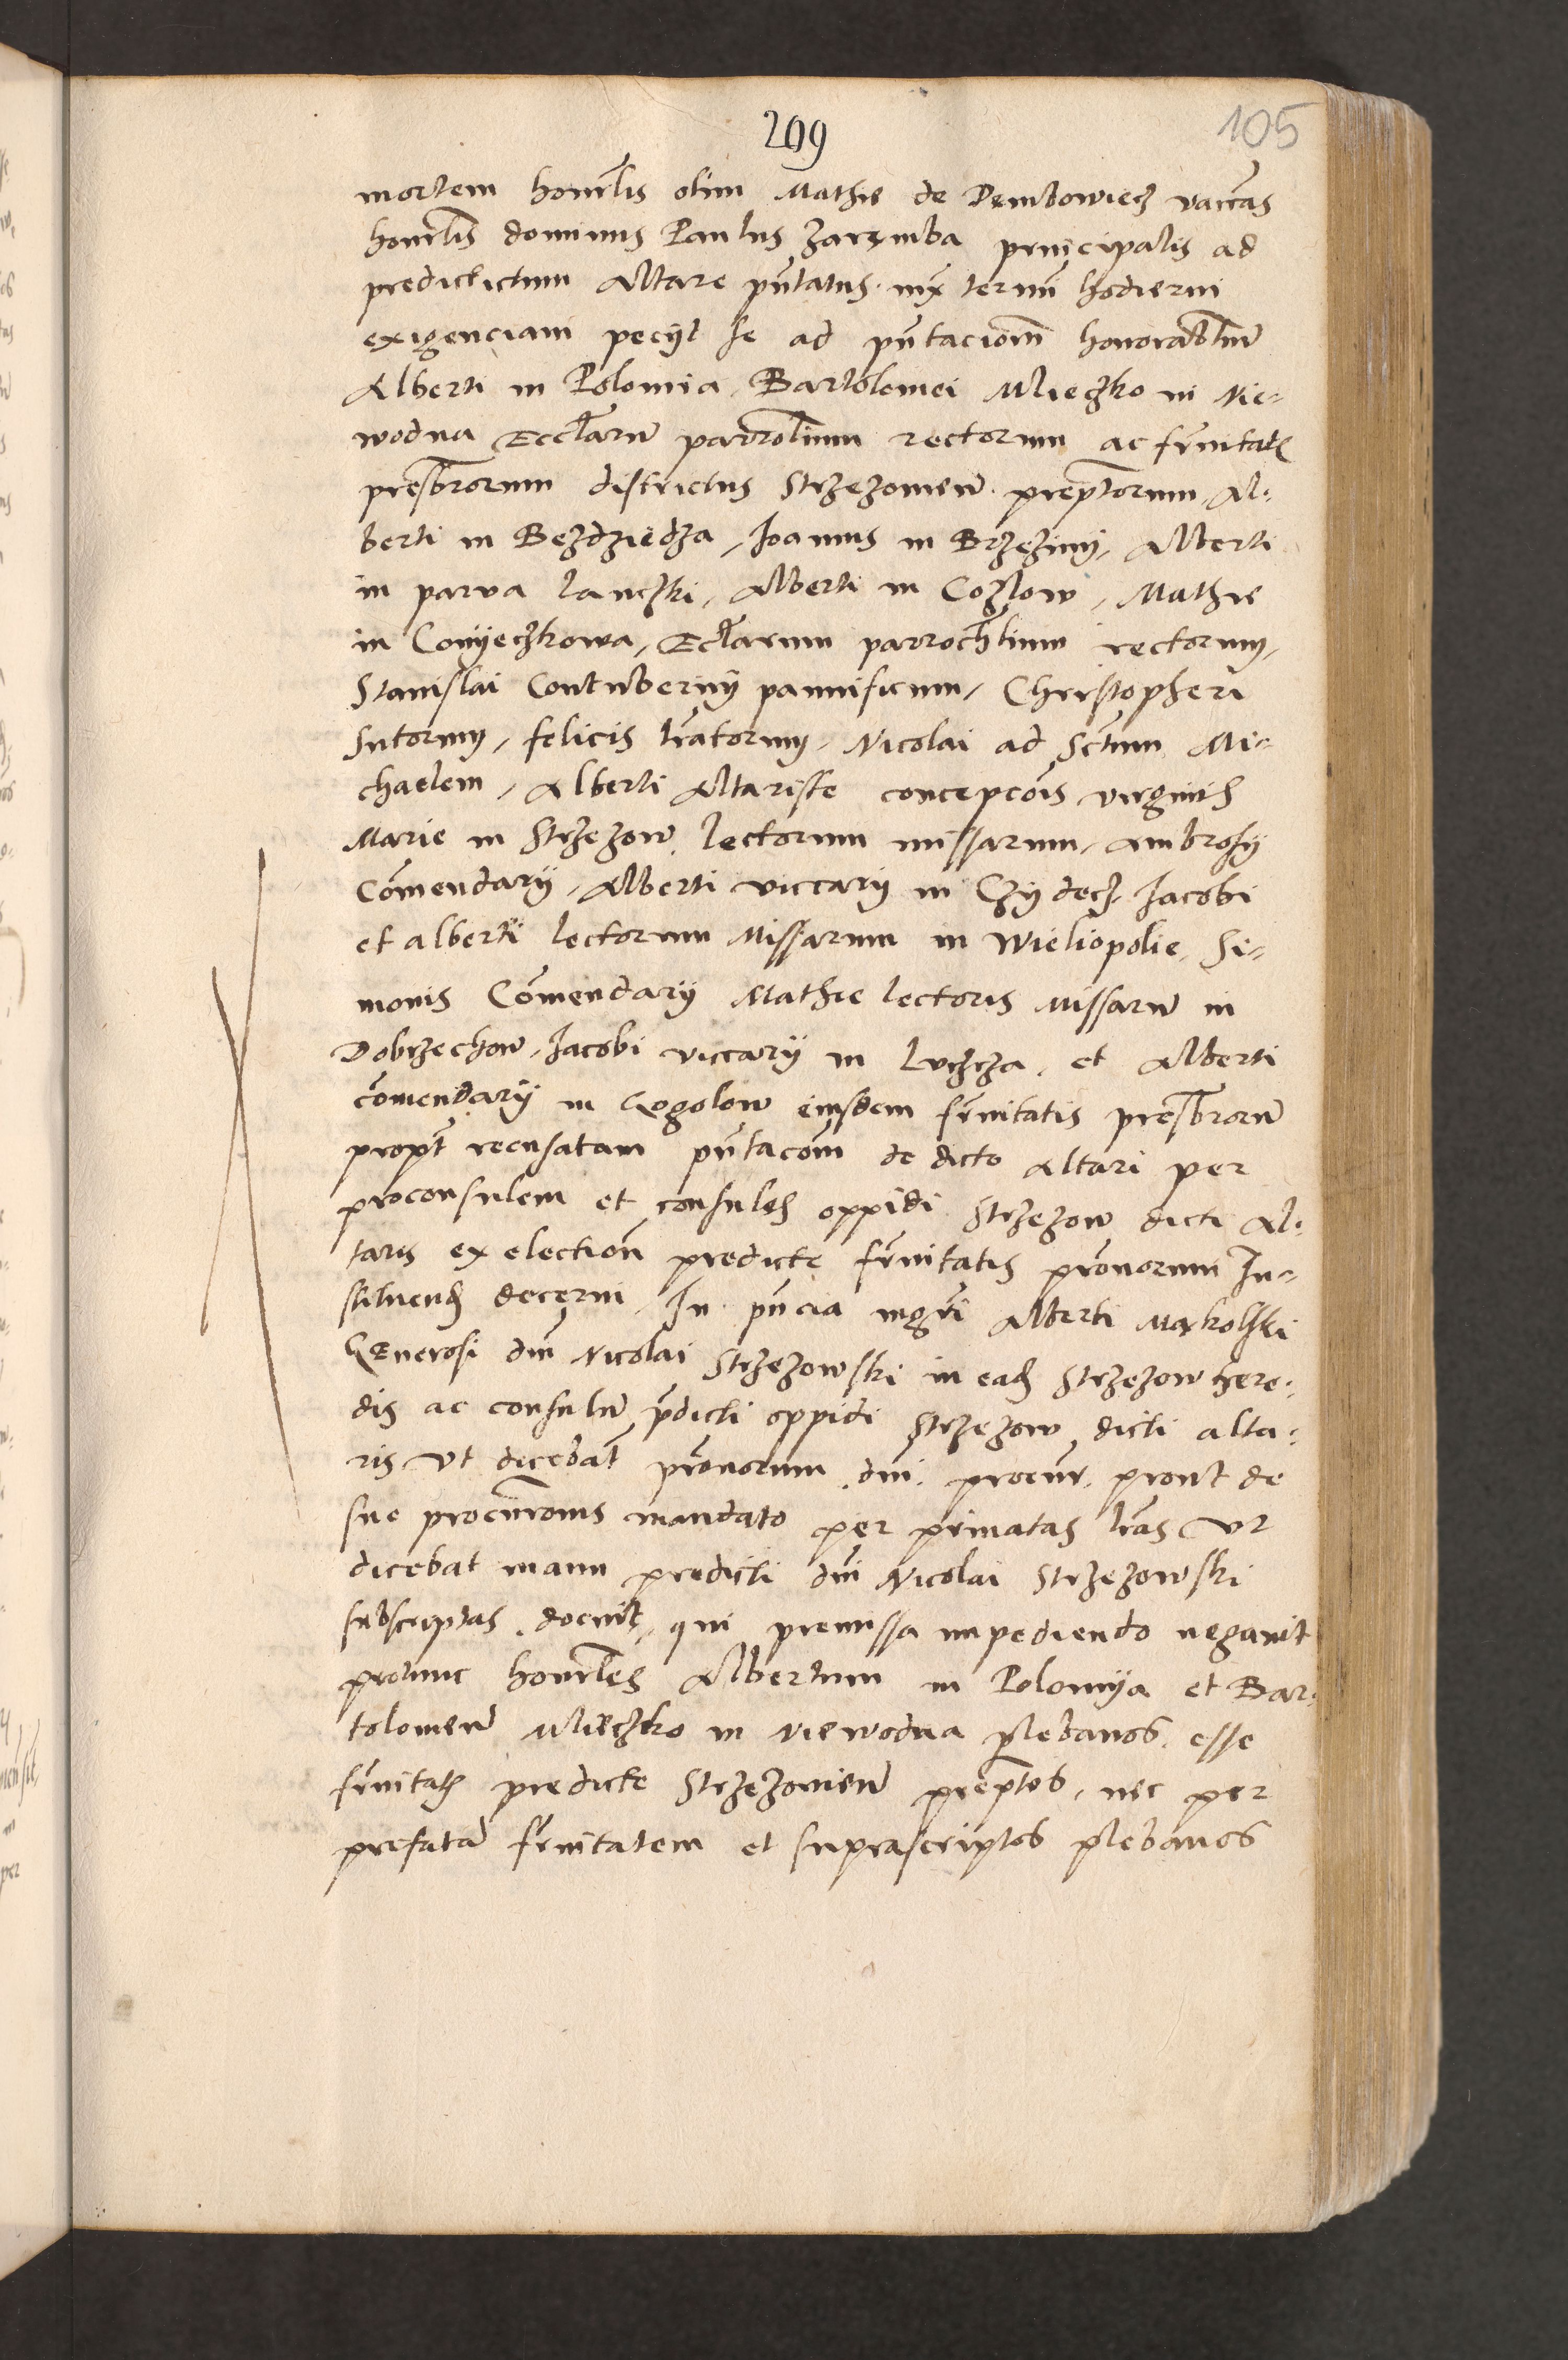 209
105
mortem honrlis olim Mathie de Dembowiecz vaccas
honrlis dominus Paulus Zaremba principalis ad
predictictum Altare pntatus iux termi hodierni
exigenciam peciit se ad pntacionem honorabilium
Alberti in Polomia, Bartolomei Mleczko in Nie-
wodna Ecclarum parrolium rectorum ac frnitatis
presbrorum districtus Strzezomien preptorum, Al-
berti in Bezdziedza, Joannis in Brzezini, Alberti
in parva lanczki, Alberti in Cozlow, Mathie
in Conyeczkowa, Ecclarum parrochlium rectorum,
Stanislai Contuberny pannificum, Christopheri
Sutorum, felicis lratorum, Nicolai ad Sctum Mi-
chaelem, Alberti Altariste concepcois virginis
Marie in Strzezow lectorum missarum, Ambrosy
Comendary, Alberti viccary in Czydecz, Jacobi
et alberti lectorum Missarum in Wieliopolie, Si-
monis Comendary Mathie lectoris Missarum in
Dobrzechow, Jacobi viccary in Luczcza, et Alberti
comendary in Gogolow eiusdem frnitatis presbrorum
propt recusatam pntacom de dicto Altari per
proconsulem et consules oppidi Strzezow dicti Al-
taris ex election predicte frnitatis pronorum In-
stituend decerni, In pncia mgri Alberti Makolski
Generosi dni Nicolai Strzezowski in ead Strzezow here-
dis ac consulum pdicti oppidi Strzezow dicti alta-
ris vt dicebat pronorum dni procur prout de
suo procuronis mandato per privatas lras vt
dicebat manu predicti dni Nicolai Strzezowski
subscriptas docuit, qui premissa impediendo negavit
protunc honrles Albertum in Polomya et Bar-
tolomeum Mleczko in Niewodna plebanos esse
frnitatis predicte Strzezomien preptos, nec per
prefatam frnitatem et suprascriptos plebanos